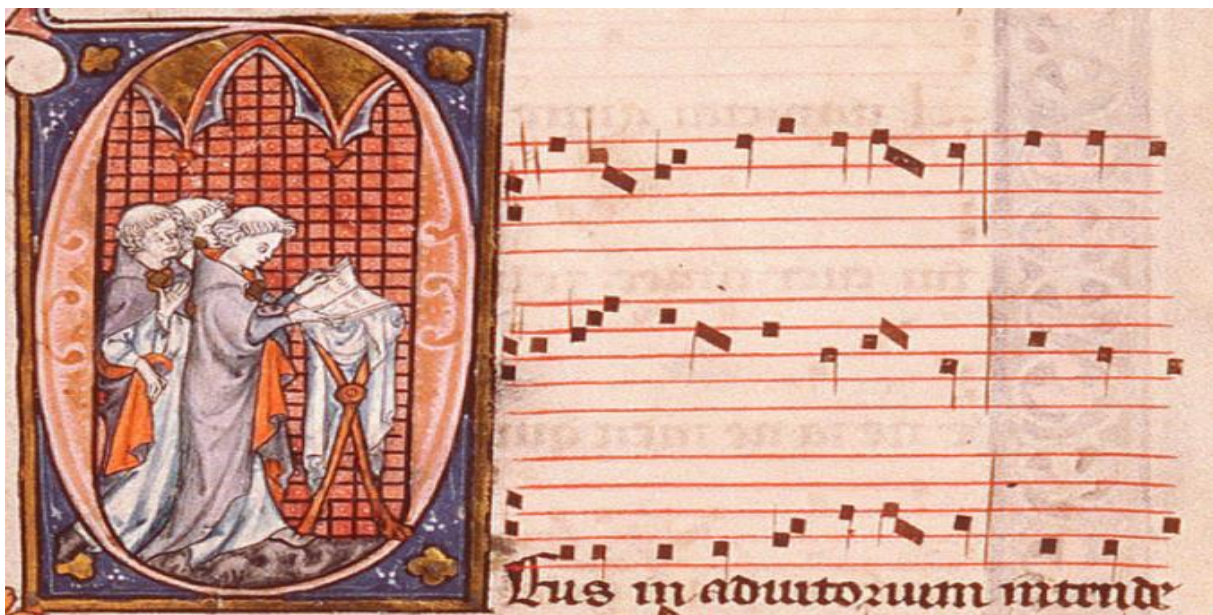 DEus in adiutorium intende